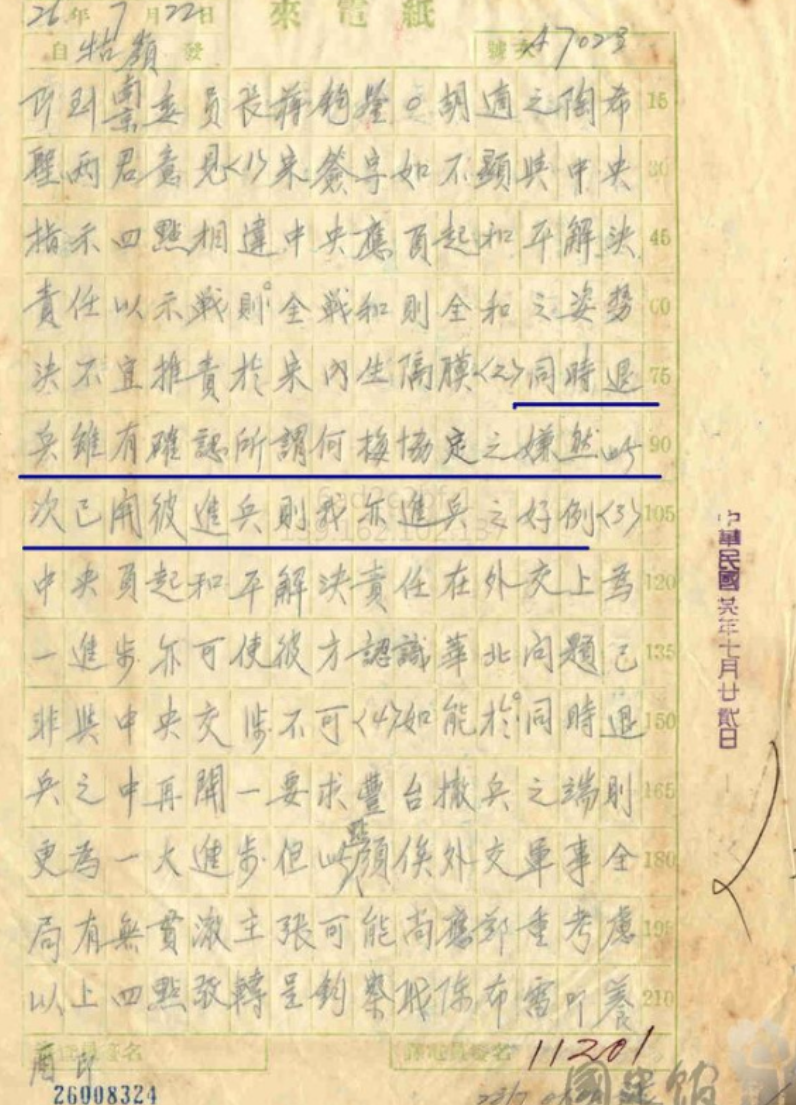 26年7月22日
來電紙
自牯嶺發
號次 47023
即到南京委員長蔣鈞鑒。胡適之陶希 15
聖兩君意見<1>宋簽字如不顯與中央 30
指示四點相違中央應負起和平解決 45
責任以示戰則全戰和則全和之姿勢 60
決不宜推責於宋內生隔膜<2>同時退 75
兵雖有確認所謂何梅協定之嫌然此 90
次已開彼進兵則我亦進兵之好例<3> 105
中央負起和平解決責任在外交上為 120
一進步亦可使彼方認識華北問題已 135
非與中央交涉不可<4>如能於同時退 150
兵之中再開一要求豐台撤兵之端則 165
更為一大進步但此點頗俟外交軍事全 180
局有無貫澈主張可能尚應鄭重考慮 195
以上四點敬轉呈鈞察職陳布雷叩養 210
酉印
簽名
譯電員簽名
11201
26008324
國史館
中華民國 年七月廿貳日